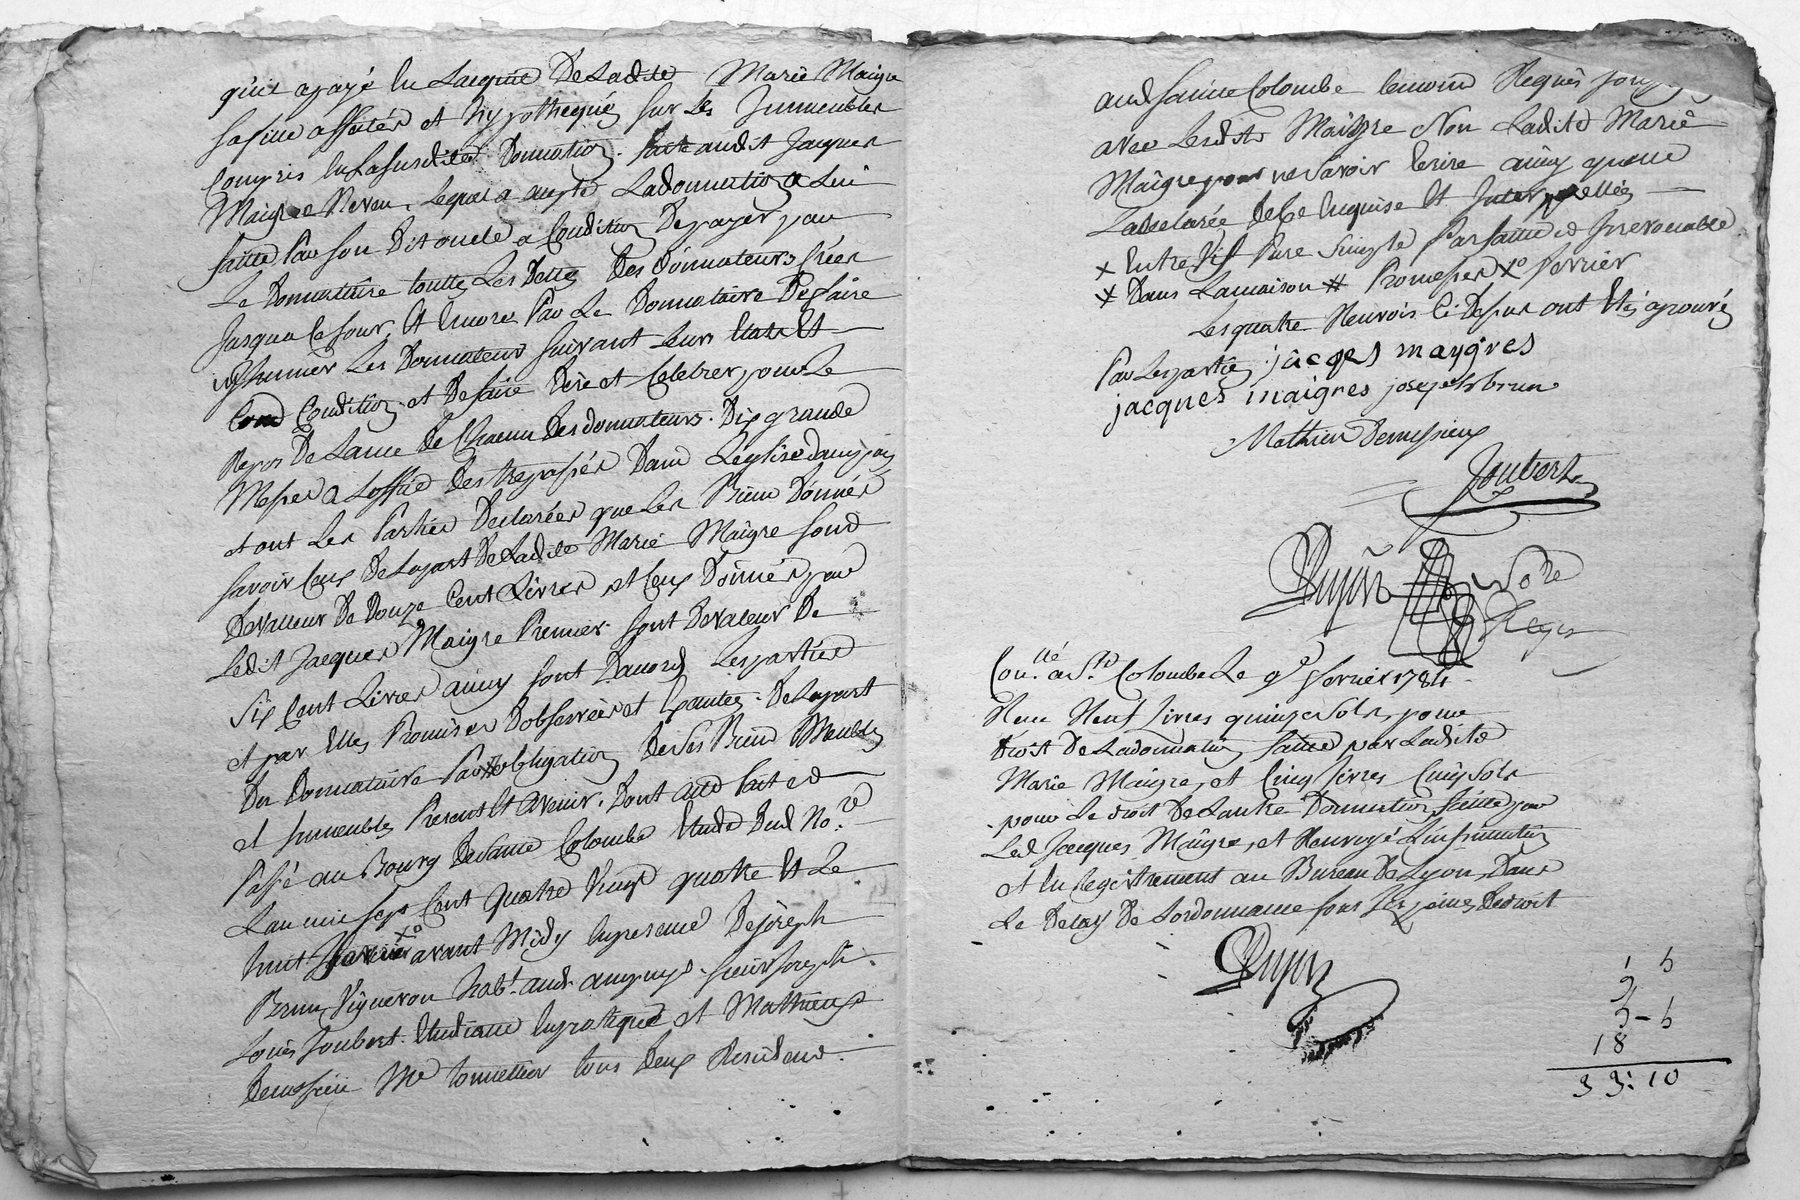 qu'il a payé en Lacquit De Ladite Marie Maigre
sa fille affectés et hypothequés sur Les Immeubles
Compris En Lasusdite Donnation. faite audit Jacques
Maigre Neveu, Lequel a accepté Ladonnation a Lui
faitte Par son Dit oncle a Condition De payer par
Le Donnataire touttes Les Dettes Des donnateurs Créés
Jusqua Ce Jour, Et Encore Par Le Donnataire De faire
inhumer Les Donnateurs suivant Leurs Etats Et
Condition, et De faire Dire et Celebrer pour Le
Repos De Lame De Chacun Des donnateurs. Dix grande
Messes a Loffice Des trepassés Dans Leglise dampuis
et ont Les Parties Declarées que Les Biens Donnés
savoir Ceux De La part De Ladite Marie Maigre sont
De valleur De Douze Cent Livres et Ceux Donnés par
Ledit Jacques Maigre Premier sont De valeur De
Six Cent Livres ainsy sont Daccord Les parties
et par Elles Promis D'observer et De La part
Du Donnataire Par # obligation De ses Biens Meubles
et Immeubles Presents Et Avenir. Dont acte fait et
Passé au Bourg De sainte Colombe Etude Dud No.re
Lan mil sept Cent quatre Vingt quatre Et Le
huit Janvier xo avant Midy En presence De Joseph
Brun Vigneron habt. aud. ampuys. sieur Joseph
Louis Joubert. Etudiant En pratique et Mathieux
Demessieu Me tonnellier tous Deux Residens.
aud sainte Colombe temoins Requis
avec Lesdits Maigre Non Ladite Marie
Maigre pour ne savoir Ecrire ainsy quelle
La declarée De Ce Enquise Et Interpellée
x Entre Vif Pure Simple Parfaitte et Irrevocable
x Dans La maison # Promesses xo fevrier
Les quatre Renvois Ci Dessus ont Eté aprouvés
Par Les parties jacqes maygres
jacques maigres joseph brun
Mathieu Demessieux
Joubert
Dujon No.re
Regis
Con.llé a Ste. Colombe Le 9e fevrier 1784.
Recu Neuf Livres quinze Sols, pour
Droit De Ladonnation faitte par Ladite
Marie Maigre, et Cinq Livres Cinq Sols
pour Le droit De Lautre Donnation faitte par
Led Jacques Maigre, et Renvoyé a Linsinuation
et En registrement au Bureau De Lyon, Dans
Le Delay De Lordonnance sous Les peines De droit
Dujon
18
33: 10